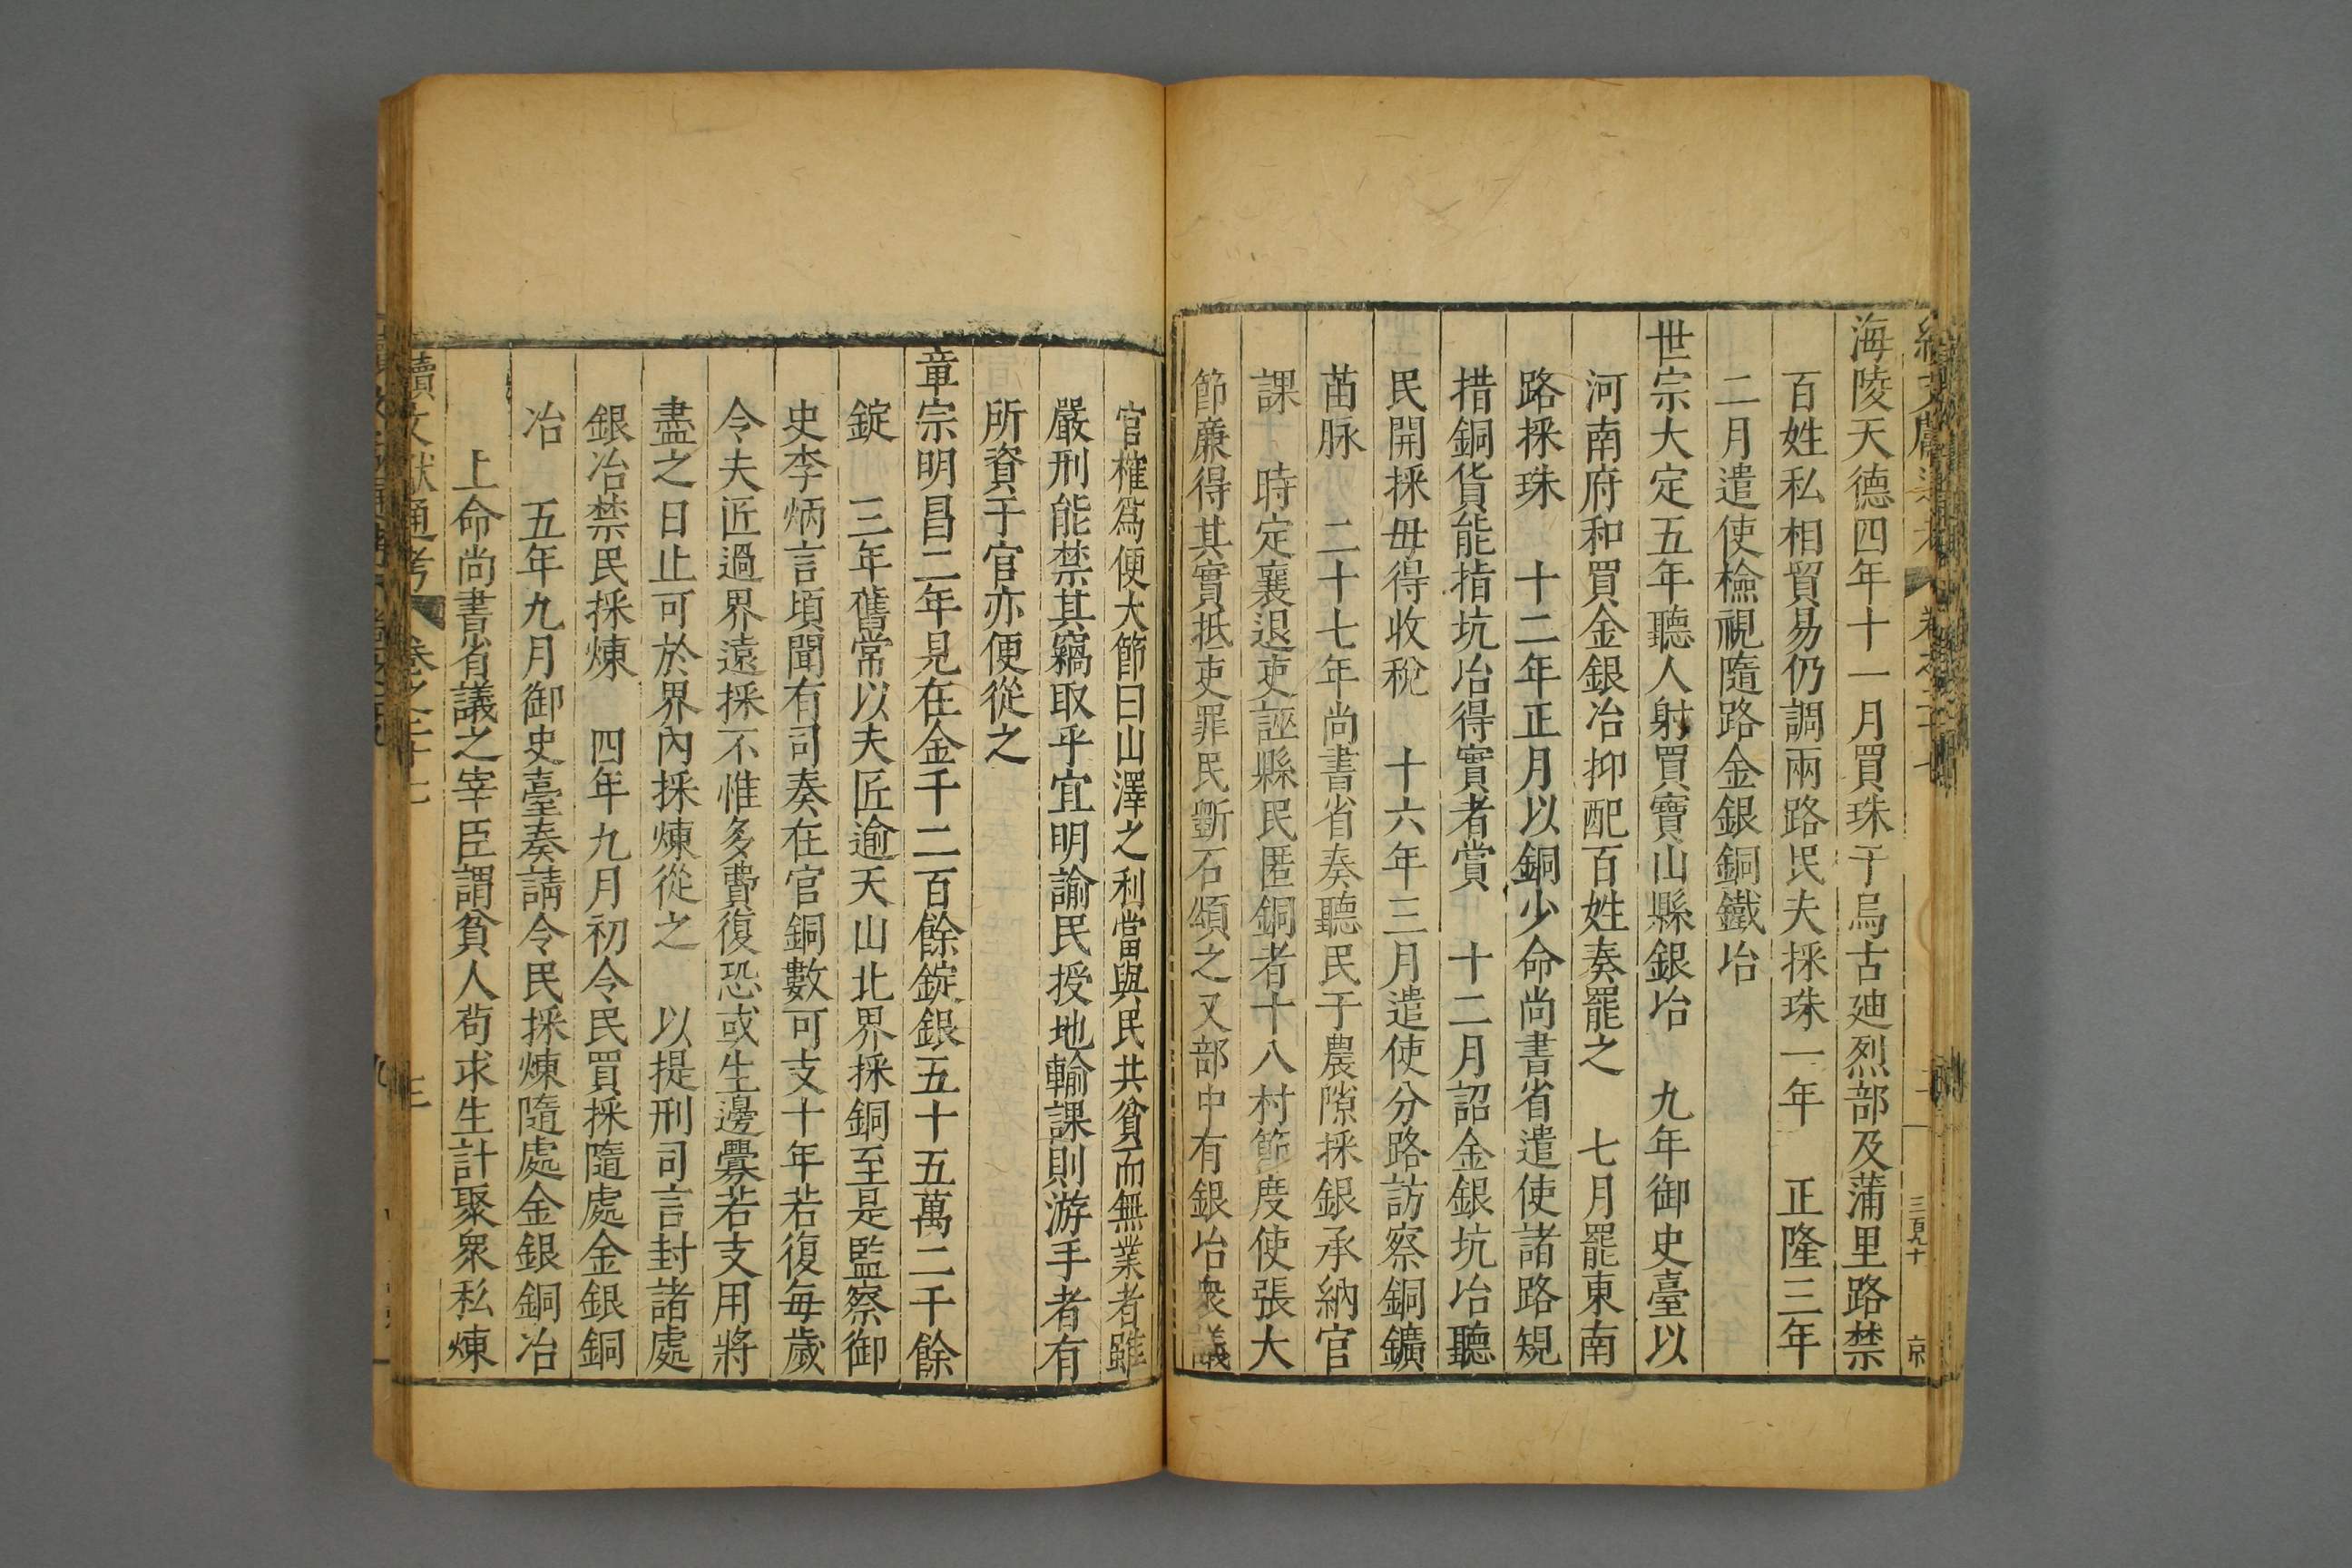 海陵天德四年十一月買珠于烏古廸烈部及蒲里路禁
百姓私相貿易仍調兩路民夫採珠一年 正隆三年
二月遣使檢視隨路金銀銅鐵冶
世宗大定五年聽人射買寶山縣銀冶 九年御史臺以
河南府和買金銀冶抑配百姓奏罷之 七月罷東南
路採珠 十二年正月以銅少命尚書省遣使諸路規
措銅貨能指坑冶得實者賞 十二月詔金銀坑冶聽
民開採毋得收稅 十六年三月遣使分路訪察銅鑛
苗脉 二十七年尚書省奏聽民于農隙採銀承納官
課 時定襄退吏誣縣民匿銅者十八村節度使張大
節廉得其實抵吏罪民斲石頌之又部中有銀冶衆議
官榷爲便大節曰山澤之利當與民共貧而無業者雖
嚴刑能禁其竊取乎宜明諭民授地輸課則游手者有
所資于官亦便從之
章宗明昌二年見在金千二百餘錠銀五十五萬二千餘
錠 三年舊常以夫匠逾天山北界採銅至是監察御
史李炳言頃聞有司奏在官銅數可支十年若復每歲
令夫匠過界遠採不惟多費復恐或生邊釁若支用將
盡之日止可於界內採煉從之 以提刑司言封諸處
銀冶禁民採煉 四年九月初令民買採隨處金銀銅
冶 五年九月御史臺奏請令民採煉隨處金銀銅冶
上命尚書省議之宰臣謂貧人苟求生計聚眾私煉
續文獻通考 卷之二十七 三